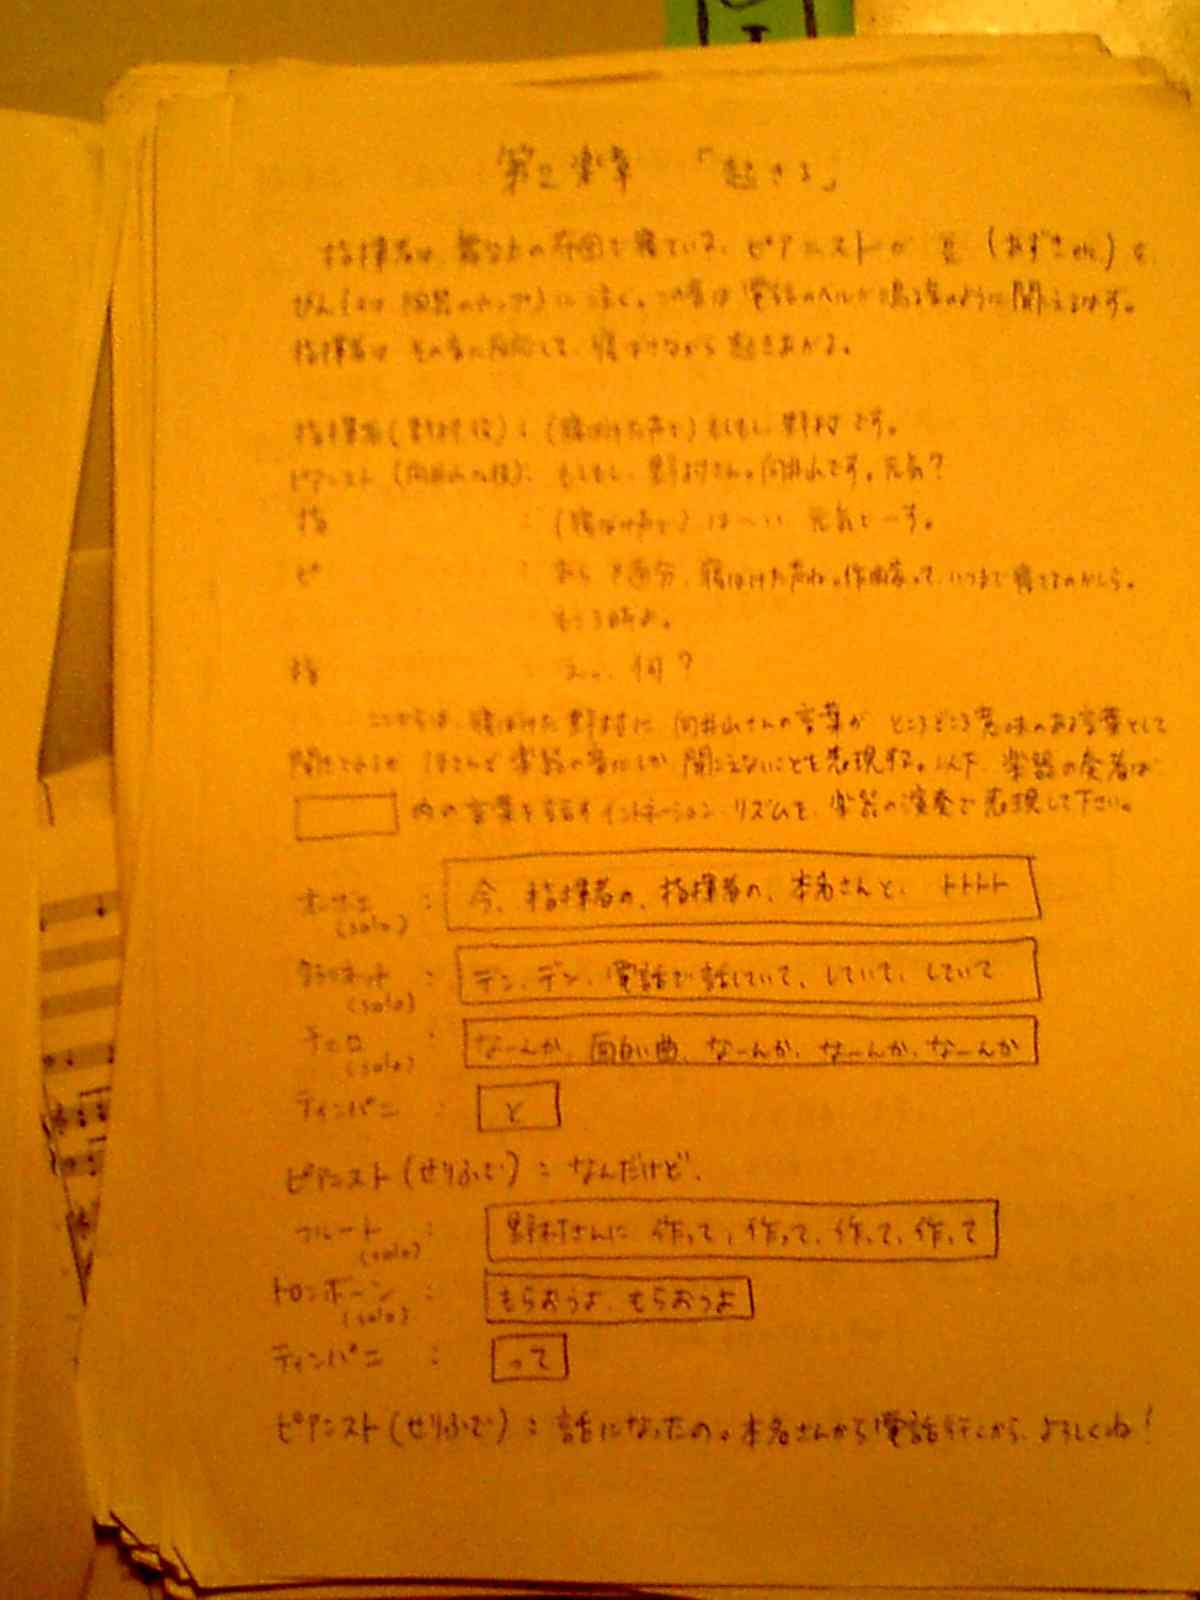 第2楽章 「起きる」
指揮者は、舞台上の布団で寝ている。ピアニストが 豆 (あずきetc) を
びん(又は 陶器のカップ)に注ぐ。この音は 電話のベルが鳴る音のように聞えるはず。
指揮者は その音に反応して、寝ぼけながら 起きあがる。
指揮者(野村役): (寝ぼけた声で) もしもし、野村です。
ピアニスト (向井山役): もしもし、野村さん。向井山です。元気?
指 : (寝ぼけ声で) は〜い 元気で〜す。
ピ : あら? 随分、寝ぼけた声ね。作曲家って、いつまで寝てるのかしら。
もう 時よ。
指 : えっ、何?
ここからは、寝ぼけた野村に 向井山さんの言葉が ところどころ意味のある言葉として
聞きとれるが ほとんど楽器の音にしか 聞こえないことを表現する。以下、楽器の奏者は
内の言葉を話すイントネーション・リズムを、楽器の演奏で表現して下さい。
(solo) : 今、指揮者の、指揮者の、本名さんと、 トトトト
クラリネット (solo) : デン、デン、電話で話していて、していて、していて
チェロ (solo) : なーんか、面白い曲、なーんか、なーんか、なーんか
ティンパニ : と
ピアニスト (せりふで) : なんだけど、
フルート (solo) : 野村さんに 作って、作って、作って、作って
トロンボーン (solo) : もらおうよ、もらおうよ
ティンパニ : って
ピアニスト (せりふで) : 話になったの。本名さんから電話行くから、よろしくね!